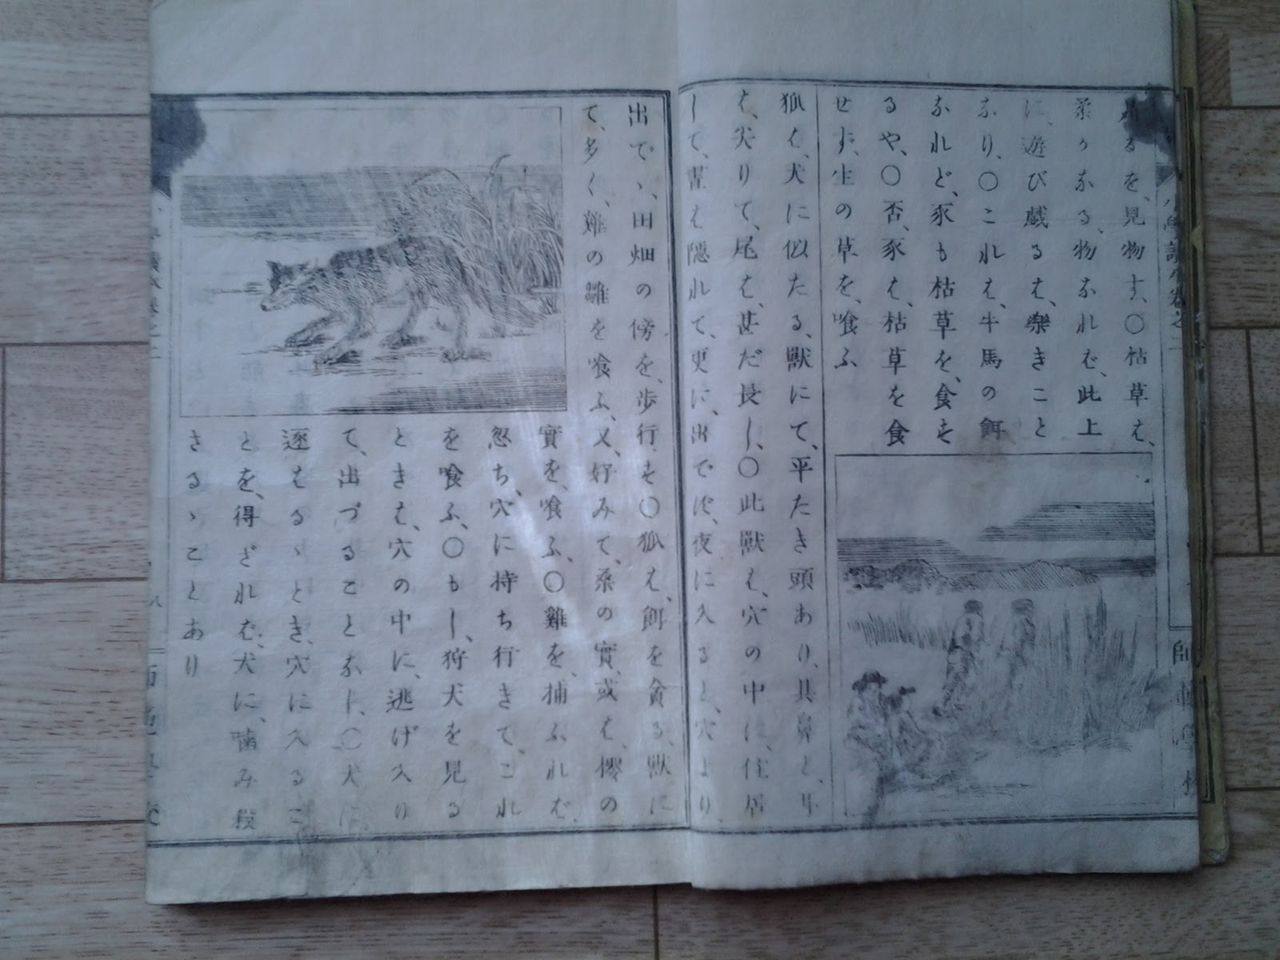 を、見物す、〇枯草は、
柔かなる、物なれば、此上
に、遊び戯るは、樂きこと
なり、〇これは、牛馬の餌
なれど、豕も枯草を、食す
るや、〇否、豕は、枯草を食
せず、生の草を、喰ふ
狐は、犬に似たる、獸にて、平たき頭あり、其鼻と、耳
は、尖りて、尾は、甚だ長し、〇此獸は、穴の中に、住居
して、晝は隱れて、更に、出でず、夜に入ると、穴より、
出で、田畑の傍を、歩行す〇狐は、餌を貪る、獸に
て、多く、雞の雛を喰ふ、又、好みて、桑の實、或は、櫻の
實を、喰ふ、〇雞を、捕ふれば、
忽ち、穴に持ち行きて、これ
を喰ふ、〇もし、狩犬を見る
ときは、穴の中に、逃げ入り
て、出づることなし、〇犬に
逐はるゝとき、穴に入るこ
とを、得ざれば、犬に、噛み殺
さるゝことあり